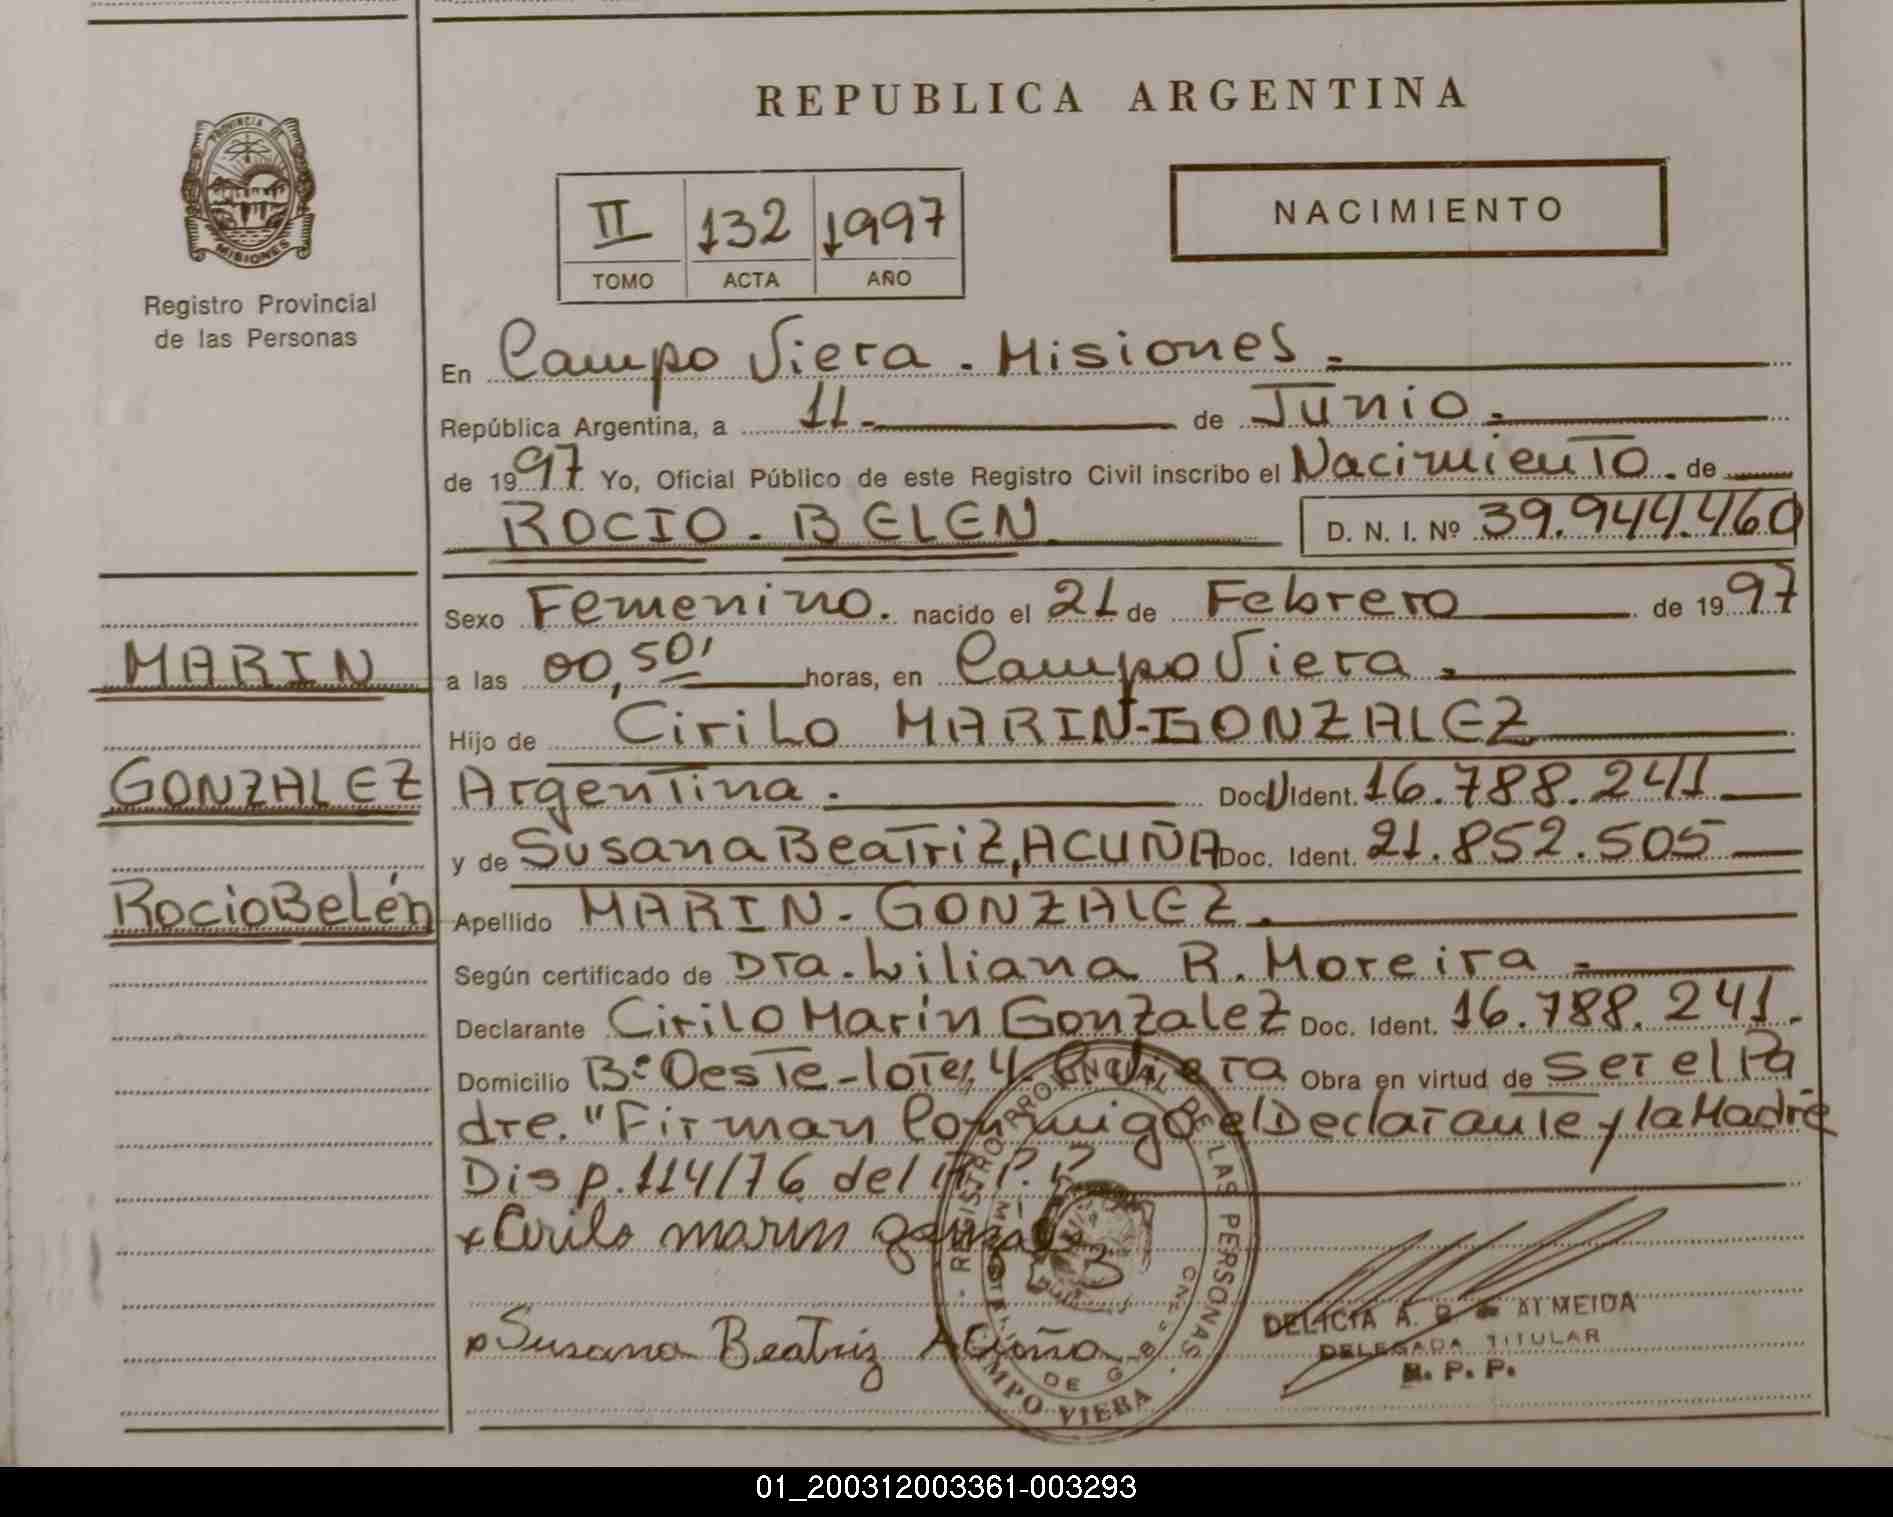 REPUBLICA ARGENTINA
PROVINCIA DE
MISIONES
Registro Provincial
de las Personas
II 132 1997
TOMO ACTA AÑO
NACIMIENTO
En Campo Viera - Misiones.
República Argentina, a 11 - de Junio.
de 1997 Yo, Oficial Público de este Registro Civil inscribo el Nacimiento. de
ROCIO - BELEN D. N. I. Nº 39.944.460
Sexo Femenino. nacido el 21 de Febrero de 1997
MARIN
a las 00,50' horas, en Campo Viera.
Hijo de Cirilo MARIN-GONZALEZ
GONZALEZ
Argentina. Doc U Ident. 16.788.241
y de Susana Beatriz, ACUÑA Doc. Ident. 21.852.505
Rocio Belén
Apellido MARIN - GONZALEZ.
Según certificado de Dra. Liliana R. Moreira -
Declarante Cirilo Marín Gonzalez Doc. Ident. 16.788.241.
Domicilio Bº Oeste - lote, 4 Viera Obra en virtud de ser el Pa
dre. "Firman Conmigo el Declarante y la Madre
Disp. 114/76 del R.P.P.
x Cirilo marin
x Susana Beatriz Acuña
REGISTRO PROVINCIAL DE LAS PERSONAS
CAMPO VIERA
DELICIA A. ALMEIDA
DELEGADA TITULAR
R. P. P.
01_200312003361-003293